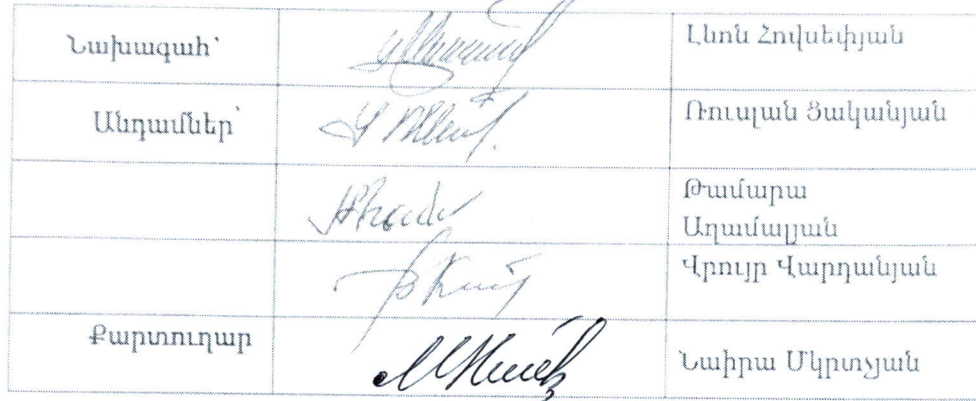 Նախագահ՝ Լևոն Հովսեփյան
Անդամներ՝ Ռուսլան Ցականյան
Թամարա
Աղամալյան
Վրույր Վարդանյան
Քարտուղար Նաիրա Մկրտչյան